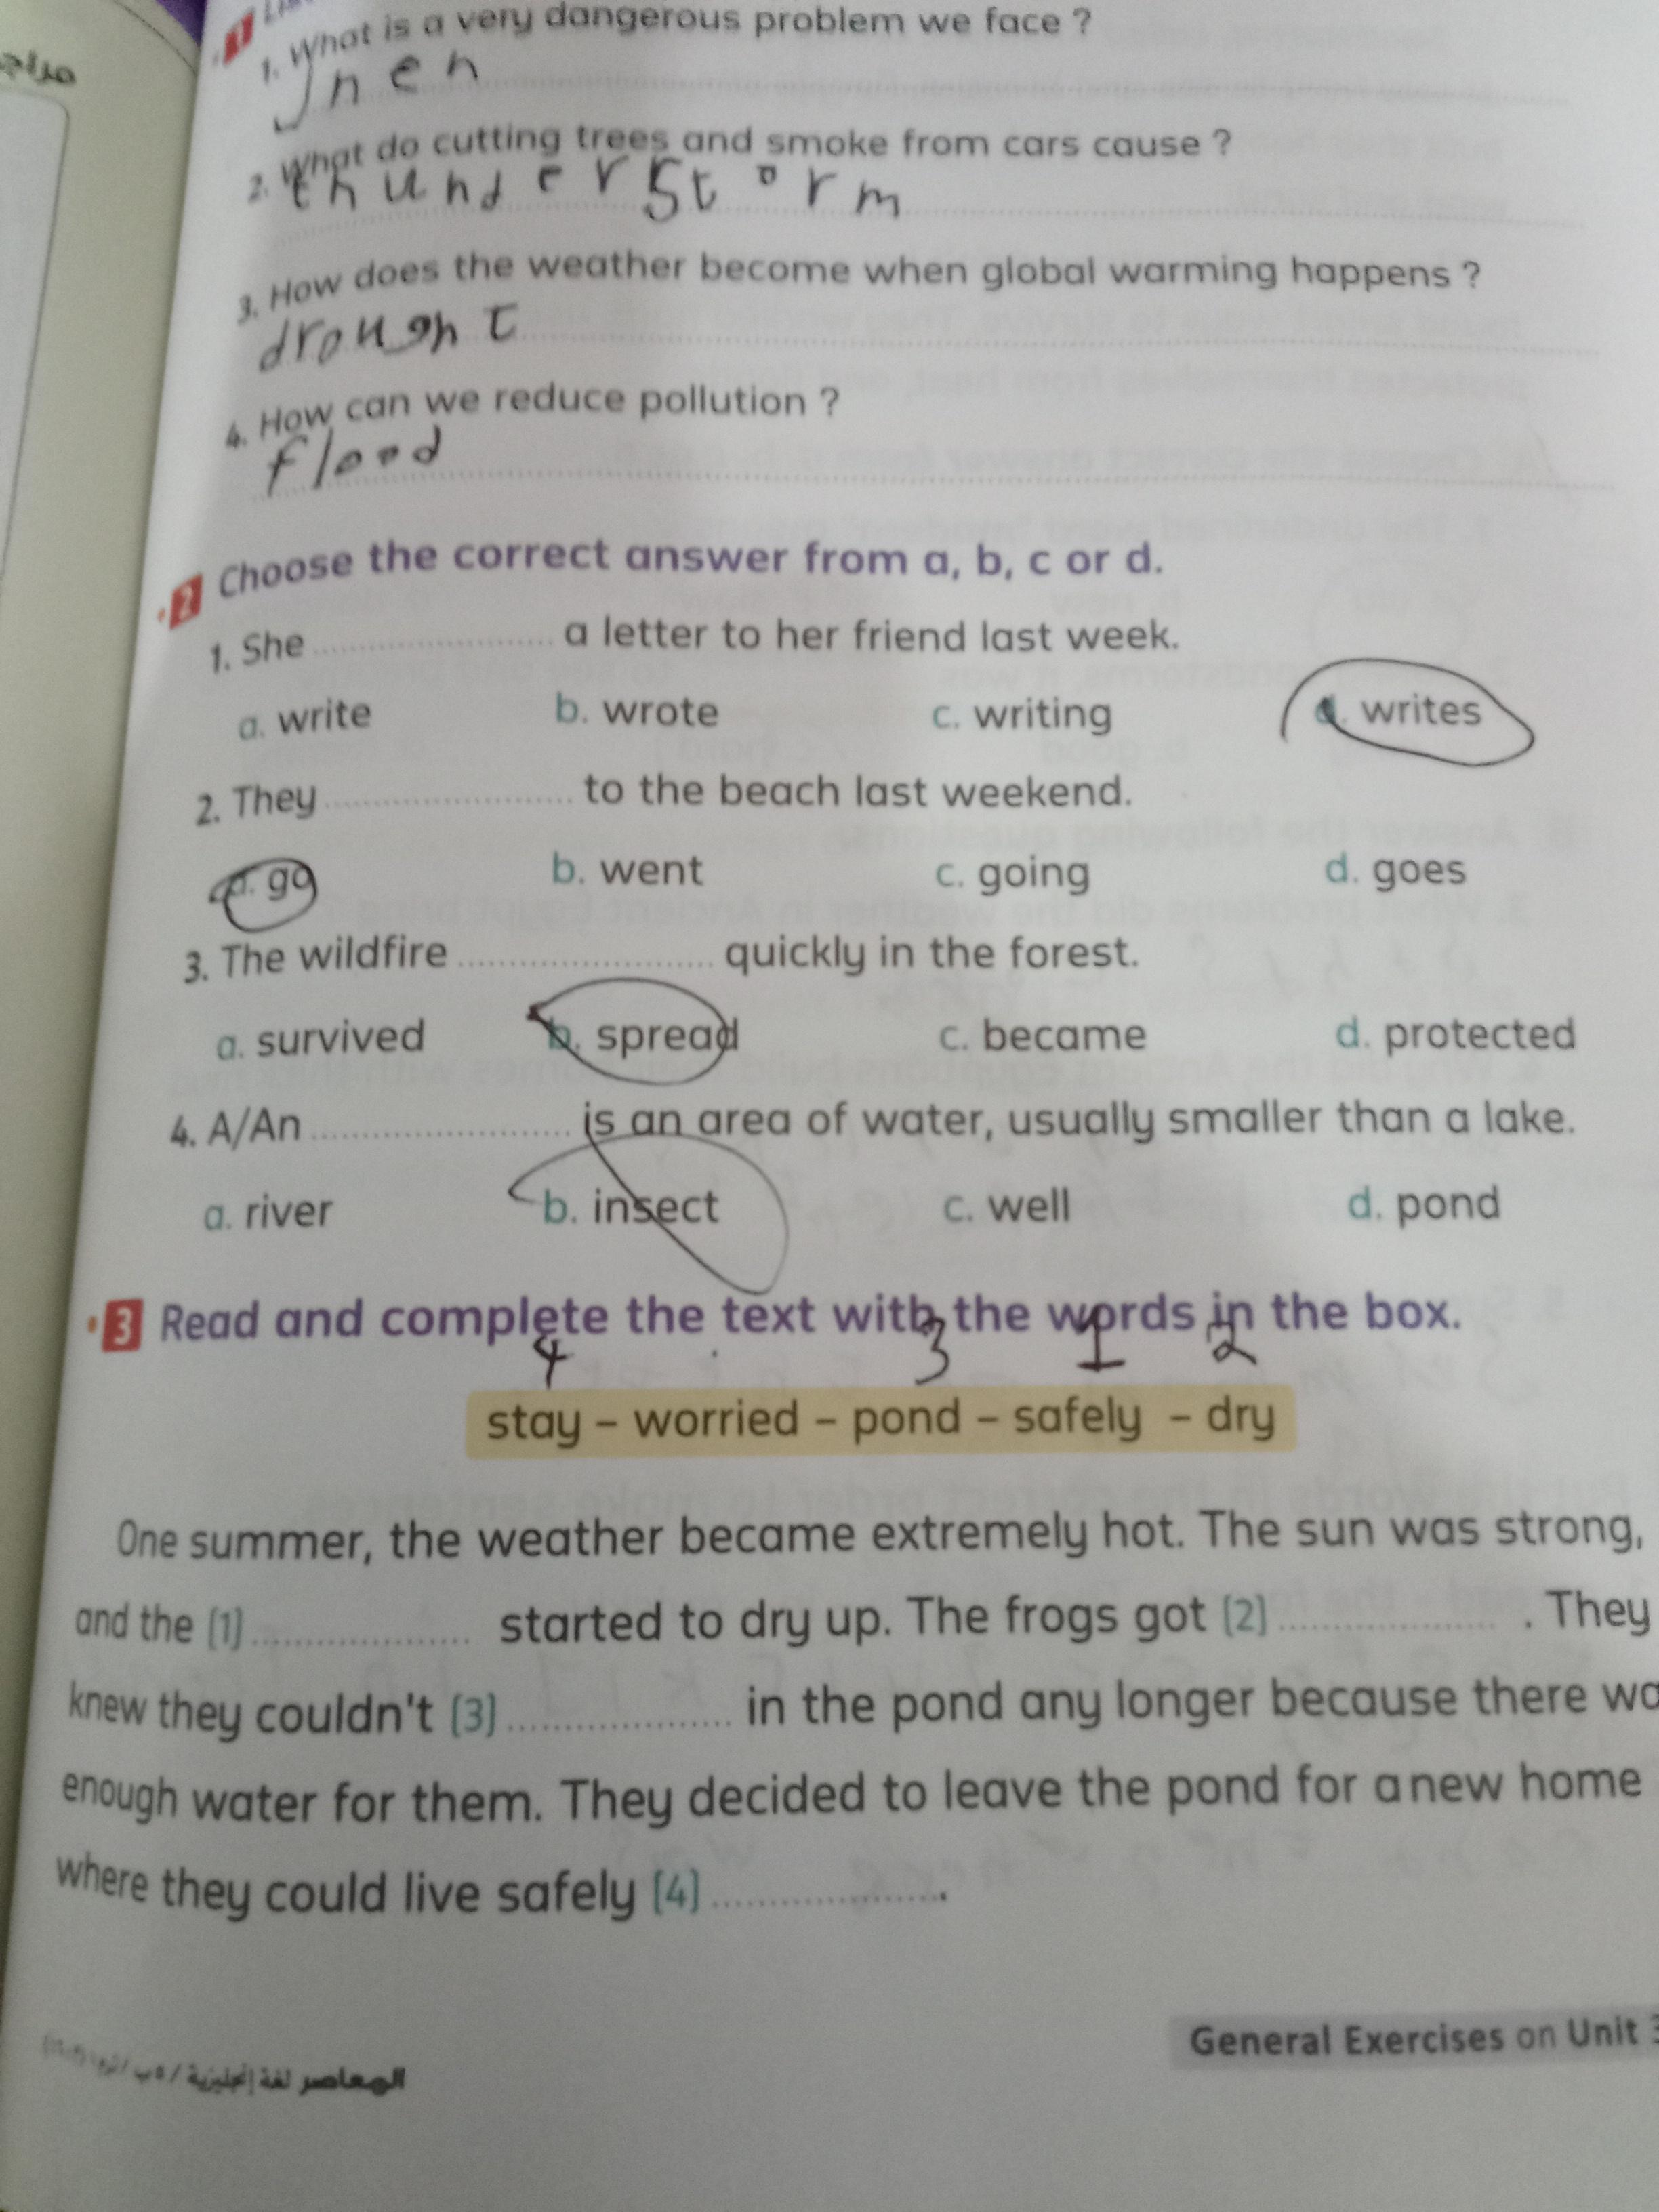 1
1. What is a very dangerous problem we face ?
2. What do cutting trees and smoke from cars cause ?
thunderstorm
3. How does the weather become when global warming happens ?
drought
4. How can we reduce pollution ?
flood
2 Choose the correct answer from a, b, c or d.
1. She .................... a letter to her friend last week.
a. write b. wrote c. writing d. writes
2. They .................... to the beach last weekend.
a. go b. went c. going d. goes
3. The wildfire .................... quickly in the forest.
a. survived b. spread c. became d. protected
4. A/An .................... is an area of water, usually smaller than a lake.
a. river b. insect c. well d. pond
3 Read and complete the text with the words in the box.
4 3 1 2
stay – worried – pond – safely – dry
One summer, the weather became extremely hot. The sun was strong,
and the (1) .................... started to dry up. The frogs got (2) .................... . They
knew they couldn't (3) .................... in the pond any longer because there
enough water for them. They decided to leave the pond for a new home
where they could live safely (4) .................... .
General Exercises on Unit 3
المعاصر لغة إنجليزية